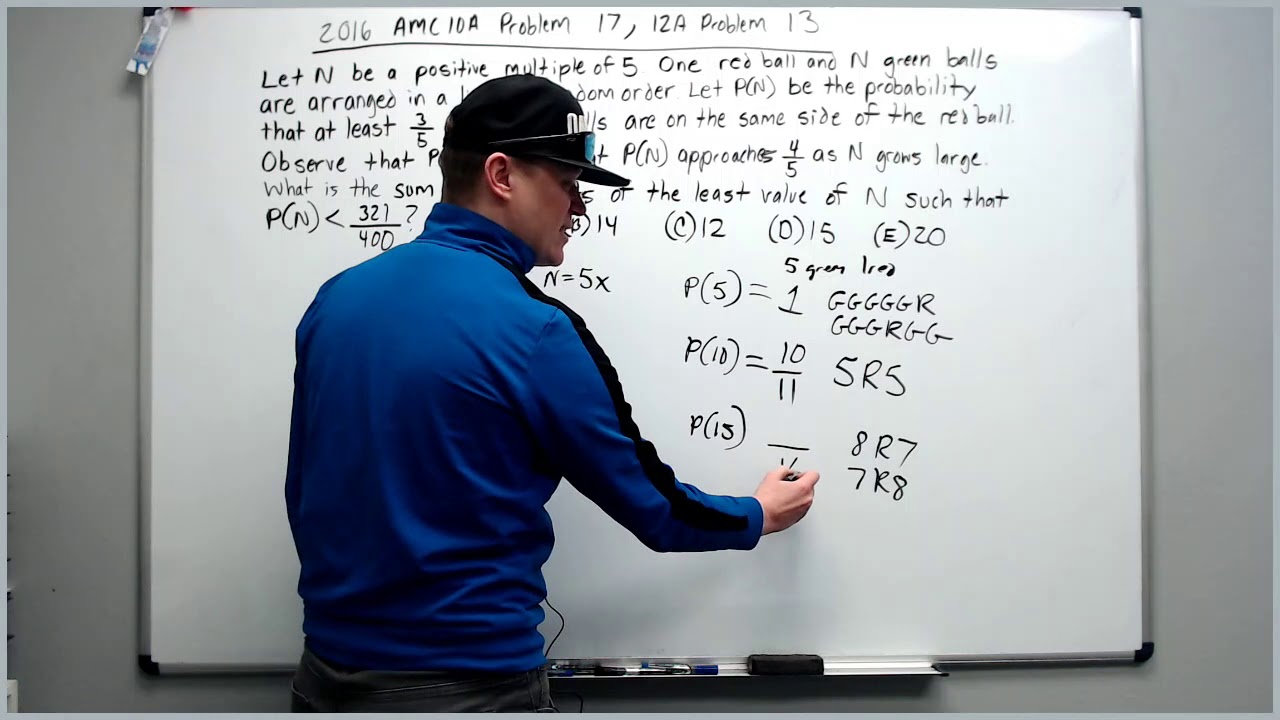 2016 AMC 10A Problem 17, 12A Problem 13
Let N be a positive multiple of 5. One red ball and N green balls
are arranged in a order. Let P(N) be the probability
that at least 3/5 are on the same side of the red ball.
Observe that P(N) approaches 4/5 as N grows large.
What is the sum of the least value of N such that
P(N) < 321/400? 14 (C) 12 (D) 15 (E) 20
5 green 1 red
N=5x
P(5) = 1 GGGGGR
GGGRGG
P(10) = 10/11 5R5
P(15) 8R7
7R8